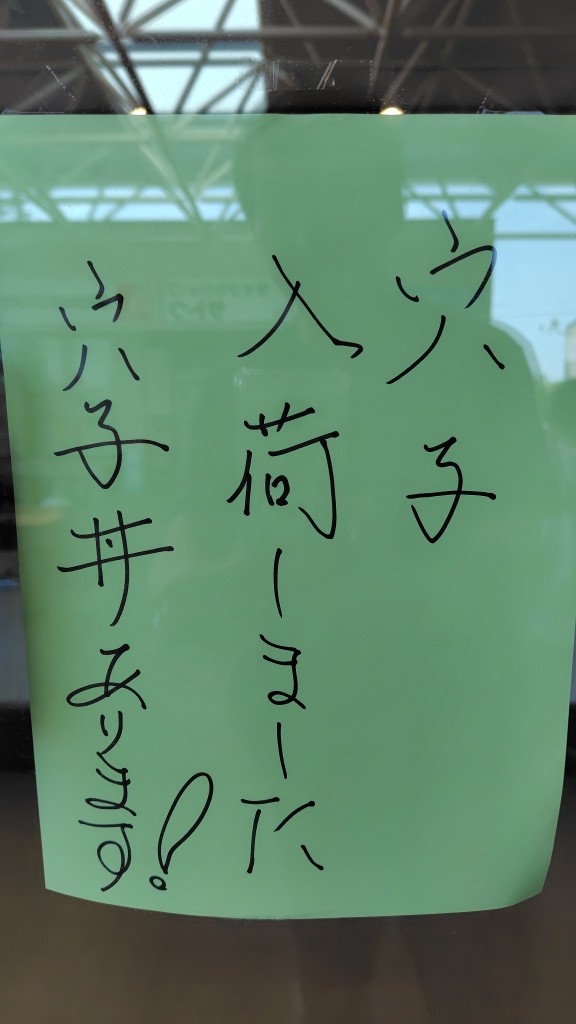 穴子
入荷しました
穴子丼あります!